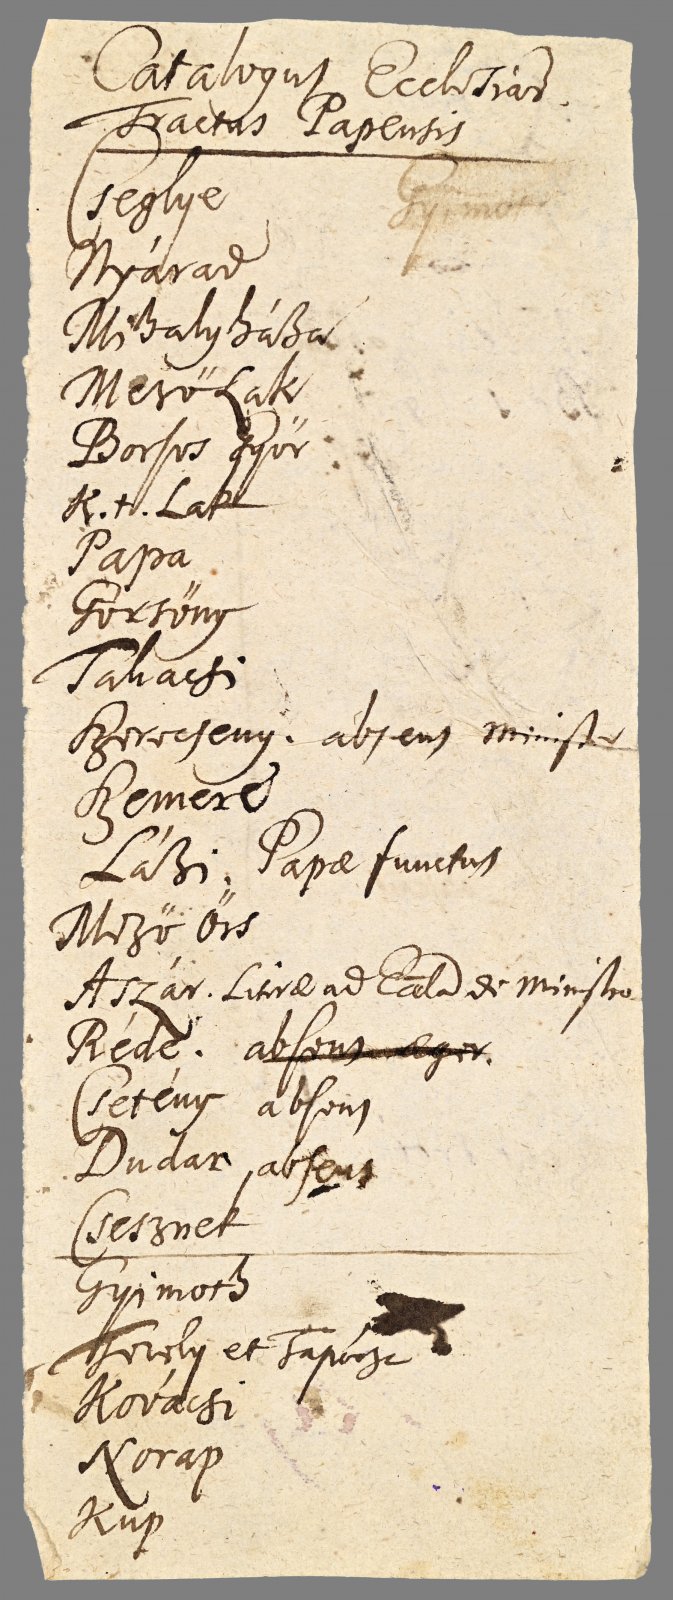 Catalogus Ecclesiar.
Tractus Papensis
Cseglye
Gyimoth
Nyárad
Mihalyháza
Mező Lak
Borsos Győr
K. t. Lak
Papa
Görsöny
Takacsi
Szerecseny. absens Minister
Szemere
Lászi. Papæ functus
Mező Örs
Aszár. Literæ ad de Ministro
Réde. absens æger.
Csetény absens
Dudar absens
Csesznek
Gyimoth
Tevely et
Kovácsi
Norap
Kup